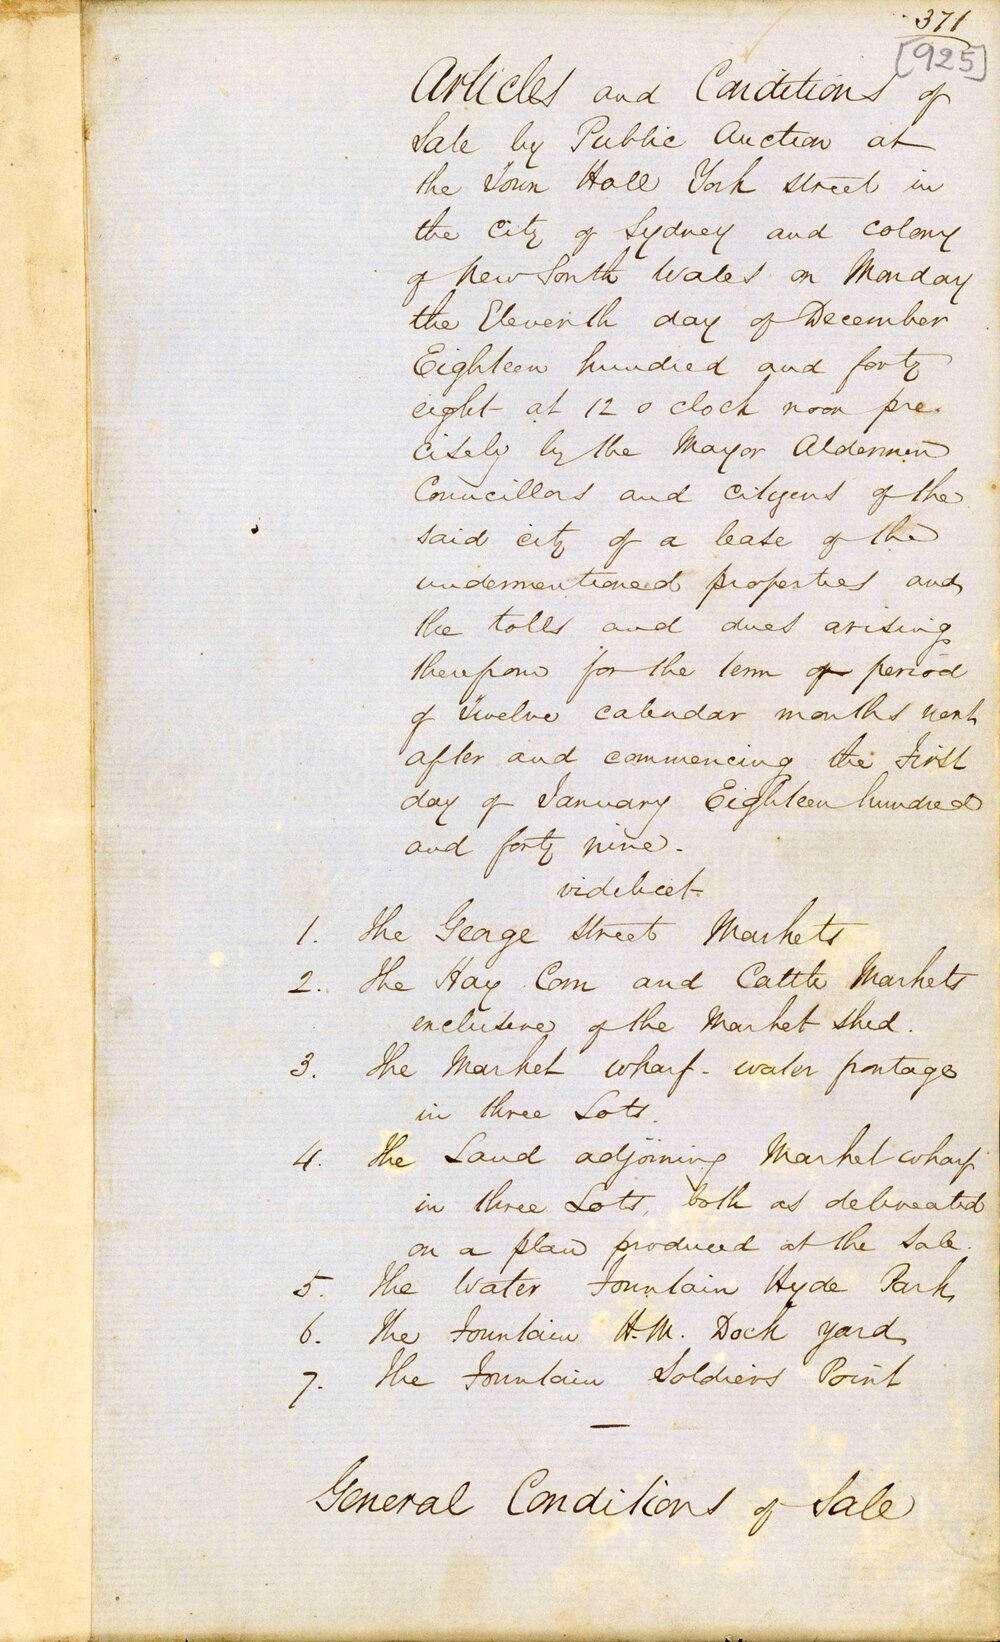 371
[925]
Articles and Conditions of
Sale by Public Auction at
the Town Hall York street in
the city of Sydney and colony
of New South Wales on Monday
the Eleventh day of December
Eighteen hundred and forty
eight at 12 o clock noon pre-
cisely by the Mayor Aldermen
Councillors and citizens of the
said city of a lease of the
undermentioned properties and
the tolls and dues arising
therefrom for the term or period
of Twelve calendar months next
after and commencing the First
day of January Eighteen hundred
and forty nine.
videlicet
1. The George street Markets
2. The Hay Corn and Cattle Markets
exclusive of the Market shed.
3. The Market wharf - water frontage
in three Lots.
4. The Land adjoining Market wharf
in three Lots, both as delineated
on a plan produced at the Sale.
5. The Water Fountain Hyde Park
6. The Fountain H.M. Dock yard
7. The Fountain Soldiers Point
General Conditions of Sale